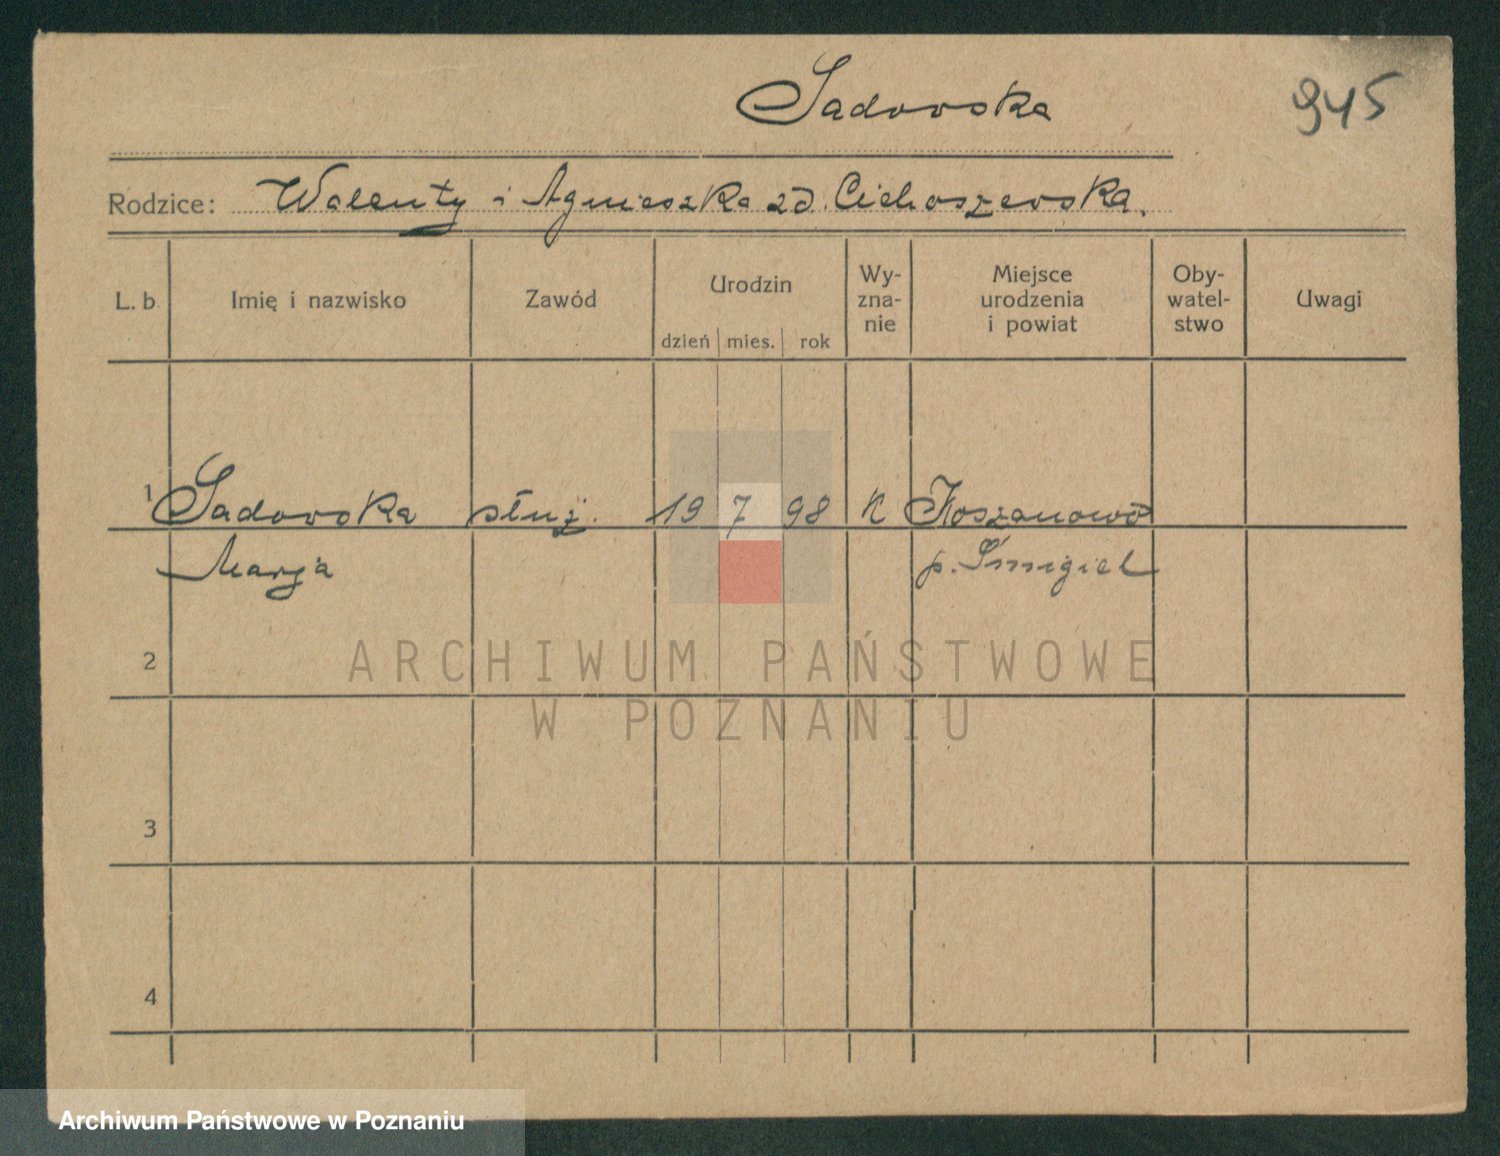 Sadowska
945
Rodzice: Walenty i Agnieszka zd. Cichoszewska.
L. b. Imię i nazwisko Zawód Urodzin dzień mies. rok Wy-zna-nie Miejsce urodzenia i powiat Oby-watel-stwo Uwagi
1 Sadowska służ. 19 7 98 K Koszanowo
Marja p. Śmigiel
2
ARCHIWUM PAŃSTWOWE
W POZNANIU
3
4
Archiwum Państwowe w Poznaniu